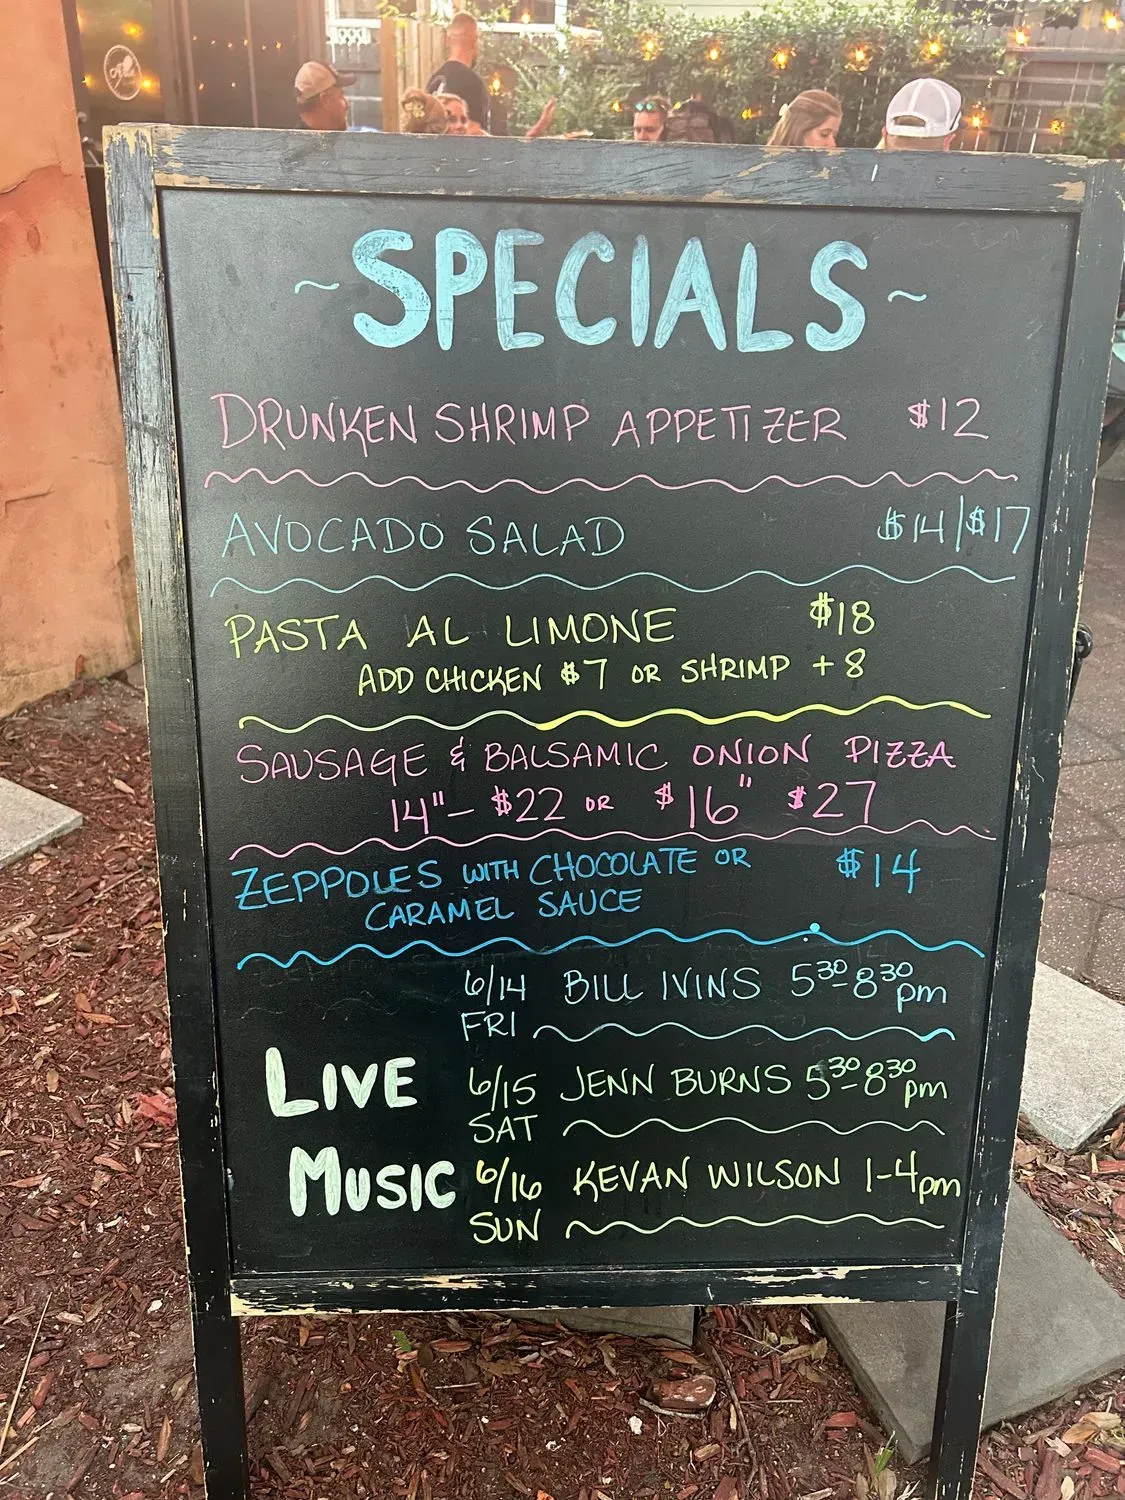 ~SPECIALS~
DRUNKEN SHRIMP APPETIZER $12
AVOCADO SALAD $14|$17
PASTA AL LIMONE $18
ADD CHICKEN $7 OR SHRIMP +8
SAUSAGE & BALSAMIC ONION PIZZA
14"- $22 OR $16" $27
ZEPPOLES WITH CHOCOLATE OR $14
CARAMEL SAUCE
6/14 BILL IVINS 5:30-8:30 pm
FRI
LIVE
6/15 JENN BURNS 5:30-8:30 pm
SAT
MUSIC
6/16 KEVAN WILSON 1-4pm
SUN